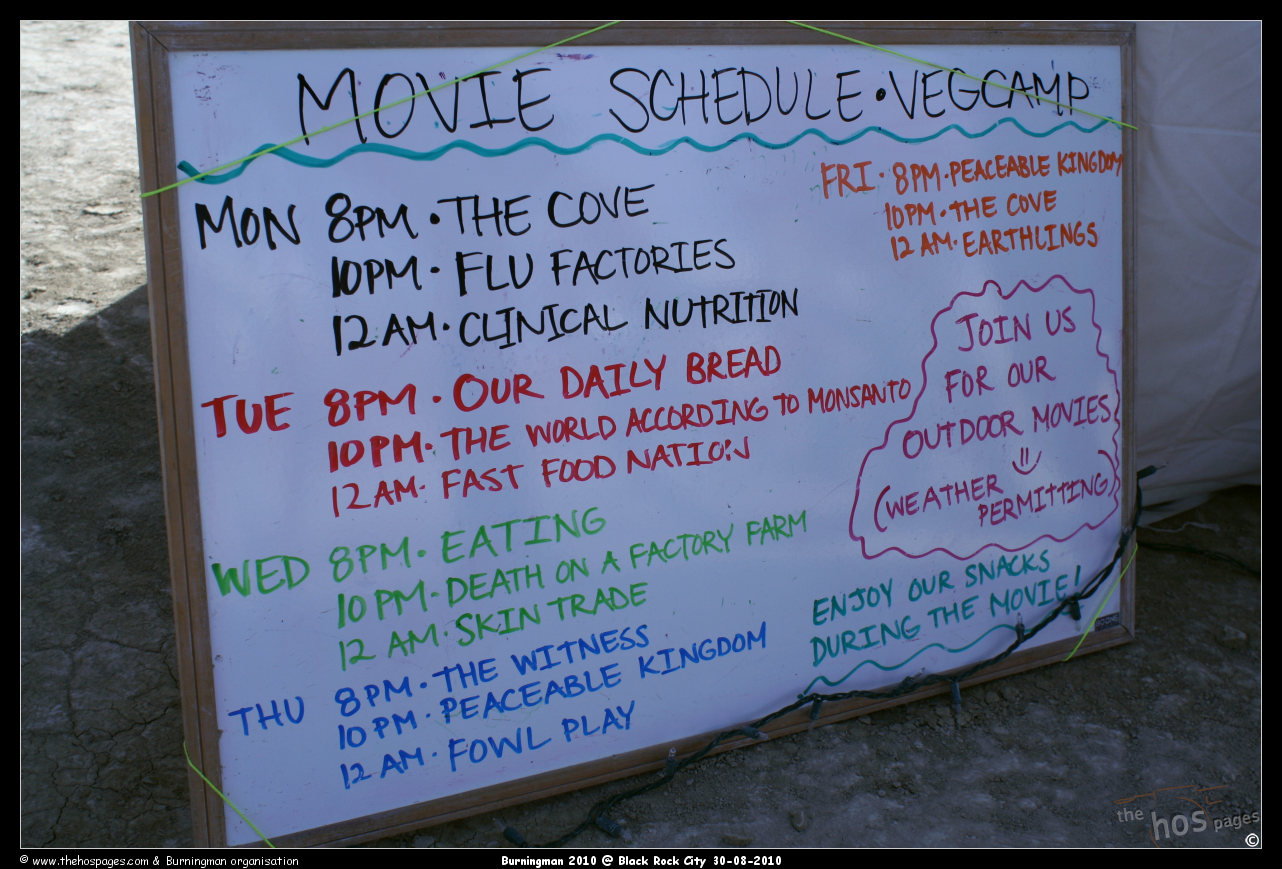 MOVIE SCHEDULE • VEGCAMP
MON 8PM • THE COVE
10PM • FLU FACTORIES
12 AM • CLINICAL NUTRITION
TUE 8PM • OUR DAILY BREAD
10PM • THE WORLD ACCORDING TO MONSANTO
12 AM • FAST FOOD NATION
WED 8PM • EATING
10PM • DEATH ON A FACTORY FARM
12 AM • SKIN TRADE
THU 8PM • THE WITNESS
10PM • PEACEABLE KINGDOM
12 AM • FOWL PLAY
FRI • 8PM • PEACEABLE KINGDOM
10PM • THE COVE
12 AM • EARTHLINGS
JOIN US
FOR OUR
OUTDOOR MOVIES
(WEATHER
PERMITTING)
ENJOY OUR SNACKS
DURING THE MOVIE!
the hos pages
©
© www.thehospages.com & Burningman organisation
Burningman 2010 @ Black Rock City 30-08-2010